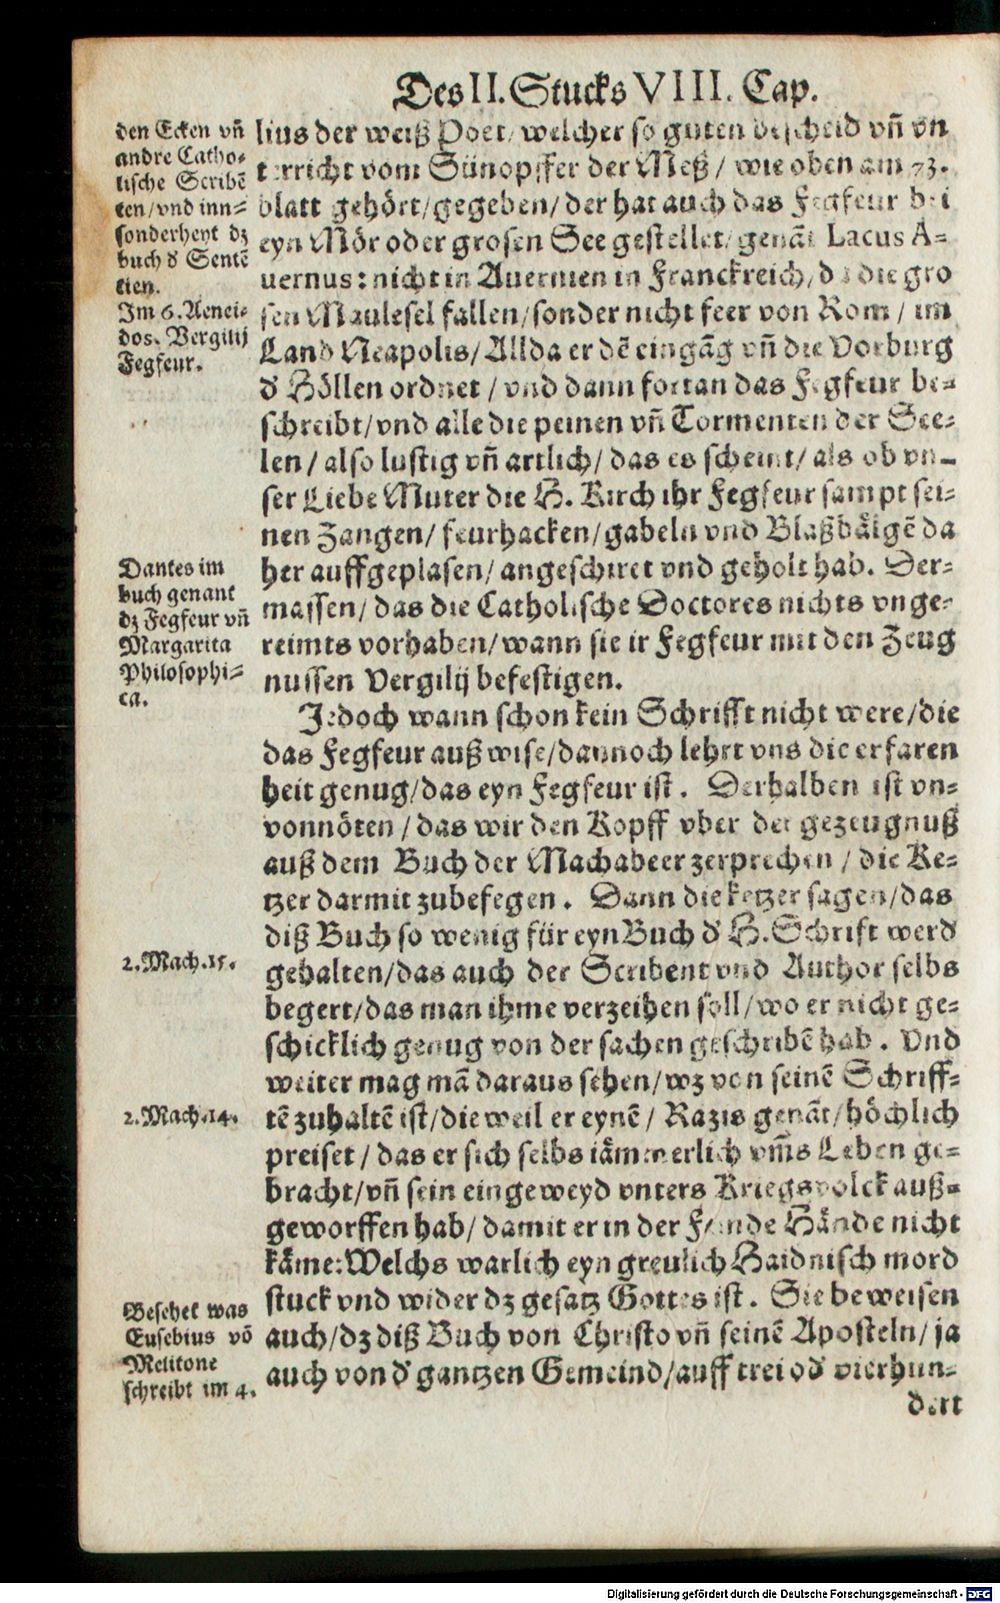 Des II. Stucks VIII. Cap.
den Ecken vñ
andre Catho-
lische Scribē
ten/vnd inn-
sonderheyt dz
buch d' Sentē
tien.
Im 6. Aenei-
dos. Vergilij
Fegfeur.
Dantes im
buch genant
dz Fegfeur vñ
Margarita
Philosophi-
ca.
2. Mach. 15.
2. Mach. 14.
Besehet was
Eusebius vō
Melitone
schreibt im 4.
lius der weiß Poet/ welcher so guten bescheid vñ vn
terricht vom Sünopffer der Meß/ wie oben am 73.
blatt gehört/gegeben/der hat auch das Fegfeur bei
eyn Mör oder grosen See gestellet/genāt Lacus A-
uernus: nicht in Auernien in Franckreich/da die gro
sen Maulesel fallen/sonder nicht feer von Rom/ im
Land Neapolis/Allda er dē eingāg vñ die Vorburg
d' Höllen ordnet/ vnd dann fortan das Fegfeur be-
schreibt/vnd alle die peinen vñ Tormenten der See-
len/ also lustig vñ artlich/ das es scheint/ als ob vn-
ser Liebe Muter die H. Kirch ihr Fegfeur sampt sei-
nen Zangen/ feurhacken/gabeln vnd Blaßbälgē da
her auffgeplasen/ angeschiret vnd geholt hab. Der-
massen/ das die Catholische Doctores nichts vnge-
reimts vorhaben/wann sie ir Fegfeur mit den Zeug
nussen Vergilij befestigen.
Jedoch wann schon kein Schrifft nicht were/die
das Fegfeur außwise/dannoch lehrt vns die erfaren
heit genug/das eyn Fegfeur ist. Derhalben ist vn-
vonnöten/ das wir den Kopff vber der gezeugnuß
auß dem Buch der Machabeer zerprechen/ die Ke-
tzer darmit zubefegen. Dann die ketzer sagen/das
diß Buch so wenig für eyn Buch d' H. Schrift werd
gehalten/das auch der Scribent vnd Author selbs
begert/das man ihme verzeihen soll/wo er nicht ge-
schicklich genug von der sachen geschribē hab. Vnd
weiter mag mā daraus sehen/wz von seinē Schriff-
tē zuhaltē ist/die weil er eynē/ Razis genāt/höchlich
preiset/ das er sich selbs iämmerlich vm̃s Leben ge-
bracht/vñ sein eingeweyd vnters Kriegsvolck auß-
geworffen hab/ damit er in der Feinde Hände nicht
käme: Welchs warlich eyn greulich Haidnisch mord
stuck vnd wider dz gesatz Gottes ist. Sie beweisen
auch/dz diß Buch von Christo vñ seinē Aposteln/ ja
auch von d' gantzen Gemeind/auff trei od' vierhun-
dert
Digitalisierung gefördert durch die Deutsche Forschungsgemeinschaft - DFG